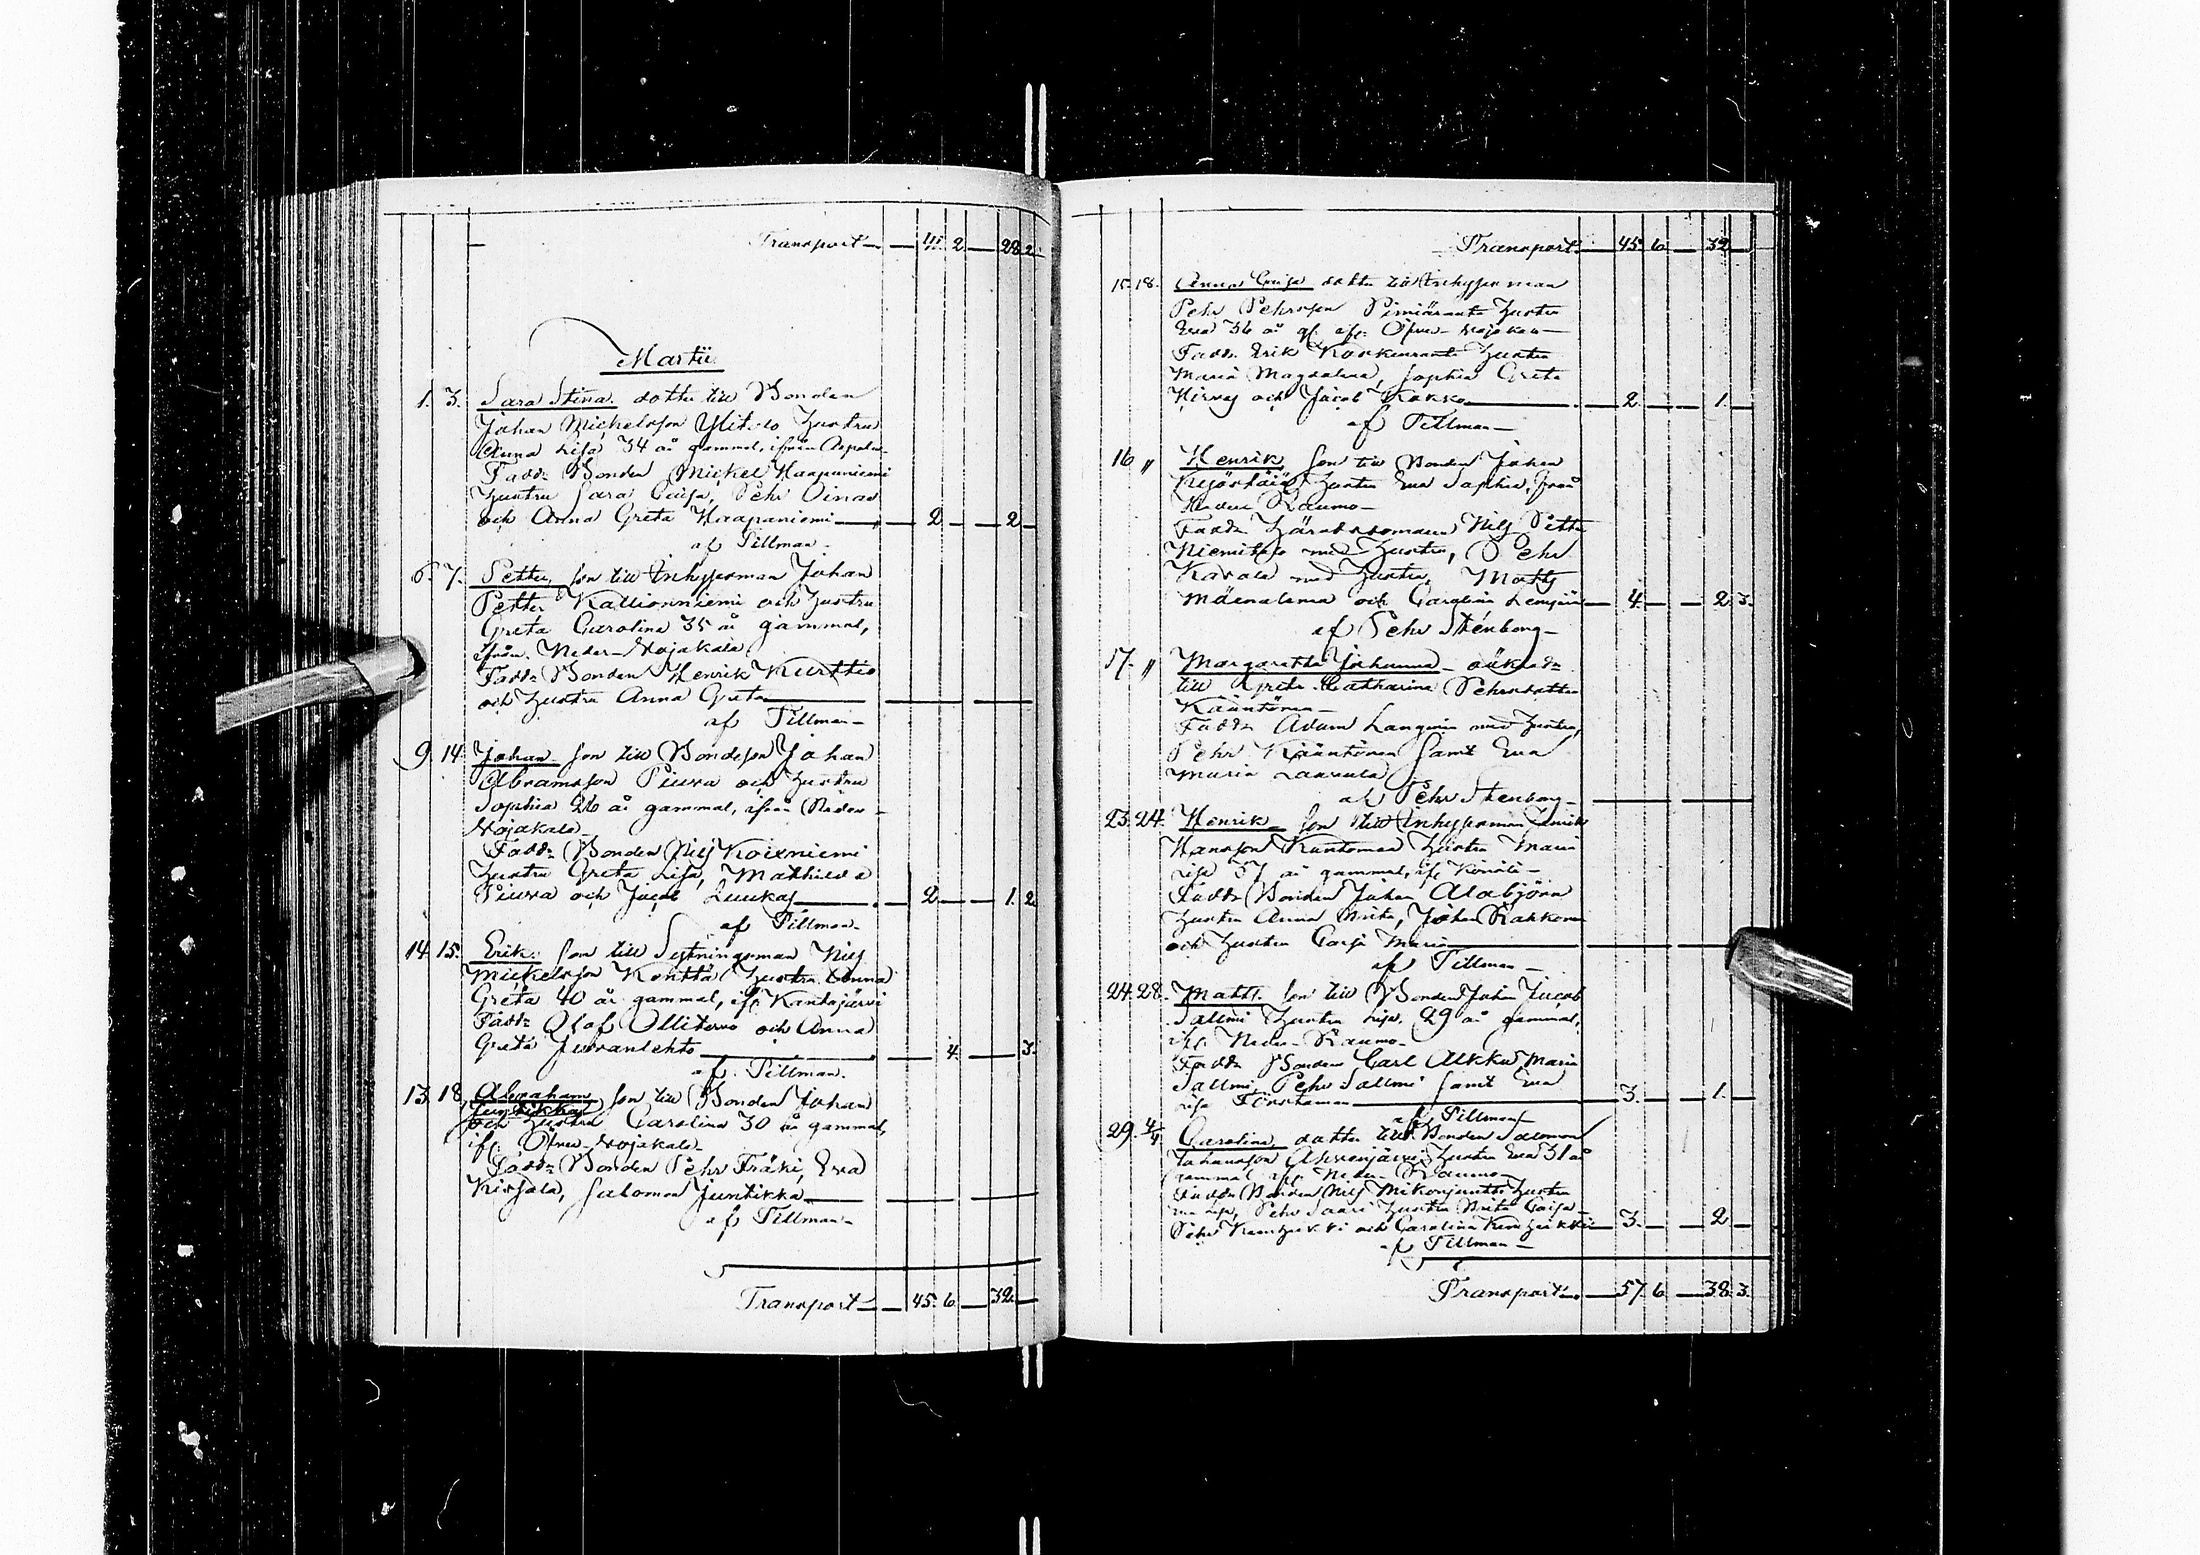 Transport 41. 2 28 2
Martii
1. 3. Sara Stina dotter till Bonden
Johan Michelsson Ylitalo hustru
Anna Lisa 34 år gammal, ifrån
Fadd: Bonden Mickel Haapaniemi
hustru Sara Caisa, Pehr Oinas
och Anna Greta Haapaniemi 2 2
af Tillman
6. 7. Petter, son till Inhysesman Johan
Petter Kallionniemi och hustru
Greta Carolina 35 år gammal,
ifrån Neder-Wojakala
Fadd: Bonden Henrik Kurttio
och hustru Anna Greta
af Tillman
9. 14. Johan son till Bondeson Johan
Abramsson Piuva och hustru
Sophia 26 år gammal, ifrån Neder-
Wojakala
Fadd: Bonden Nils Koivuniemi
hustru Greta Lisa, Mathilda
Piuva och Jacob Luukas 2 1. 2
af Tillman
14. 15. Erik son till Sytningsman Nils
Mickelsson Konttä hustru Anna
Greta 40 år gammal, ifr. Kantojärvi
Fadd: Olof Ollitervo och Anna
Greta Juvanlehto 4. 3.
af Tillman.
13. 18. Abraham, son till Bonden Johan
Juntikka
och hustru Carolina 30 år gammal,
ifr. Öfver-Wojakala
Fadd: Bonden Pehr Fräki, Eva
Salomon Juntikka
af Tillman
Transport 45. 6. 32.
Transport 45. 6 32
15. 18. Anna Caisa dotter till Inhysesman
Pehr Pehrsson hustru
Eva 36 år g. ifr. Öfver-Wojakala
Fadd: Erik hustru
Maria Magdalena, Sophia Greta
och Jacob Kokko 2. 1.
af Tillman
16 " Henrik, son till Bonden Johan
hustru Eva Sophia, från
Neder Raumo
Fadd: Häradsdomaren Nils Petter
Niemitalo med hustru, Pehr
Karala med hustru, Matts
och Carolina 4. 2. 3.
af Pehr Stenborg
17. " Margaretha Johanna oäkta dr
till Greta Catharina Pehrsdotter
Kääntönen
Fadd: Adam Langvin med hustru,
Pehr Kääntönen samt Eva
Maria Laarula
af Pehr Stenborg
23. 24. Henrik son till Inhysesman Henrik
Hansson hustru Maria
Lisa 37 år gammal, ifr.
Fadd: Bonden Johan Alabjörn
hustru Anna Brita, Johan Kakkonen
och hustru Caisa Maria
af Tillman
24. 28. Matts son till Bonden Johan Jacob
Sallmi hustru Lisa 29 år gammal,
ifr. Neder-Raumo
Fadd: Bonden Carl Alkku, Maria
Sallmi, Pehr Sallmi samt Eva
Lisa 3. 1.
af Tillman
29. 4/4 Carolina, dotter till Bonden Salomon
Johansson Ahvenjärvi hustru Eva 31 år
gammal ifr. Neder-Raumo
Fadd: Bonden Nils Mikonjuntti hustru
Eva Lisa, Pehr Saari hustru Brita Caisa
Pehr och Carolina 3. 2
af Tillman
Transport 57. 6 38. 3.